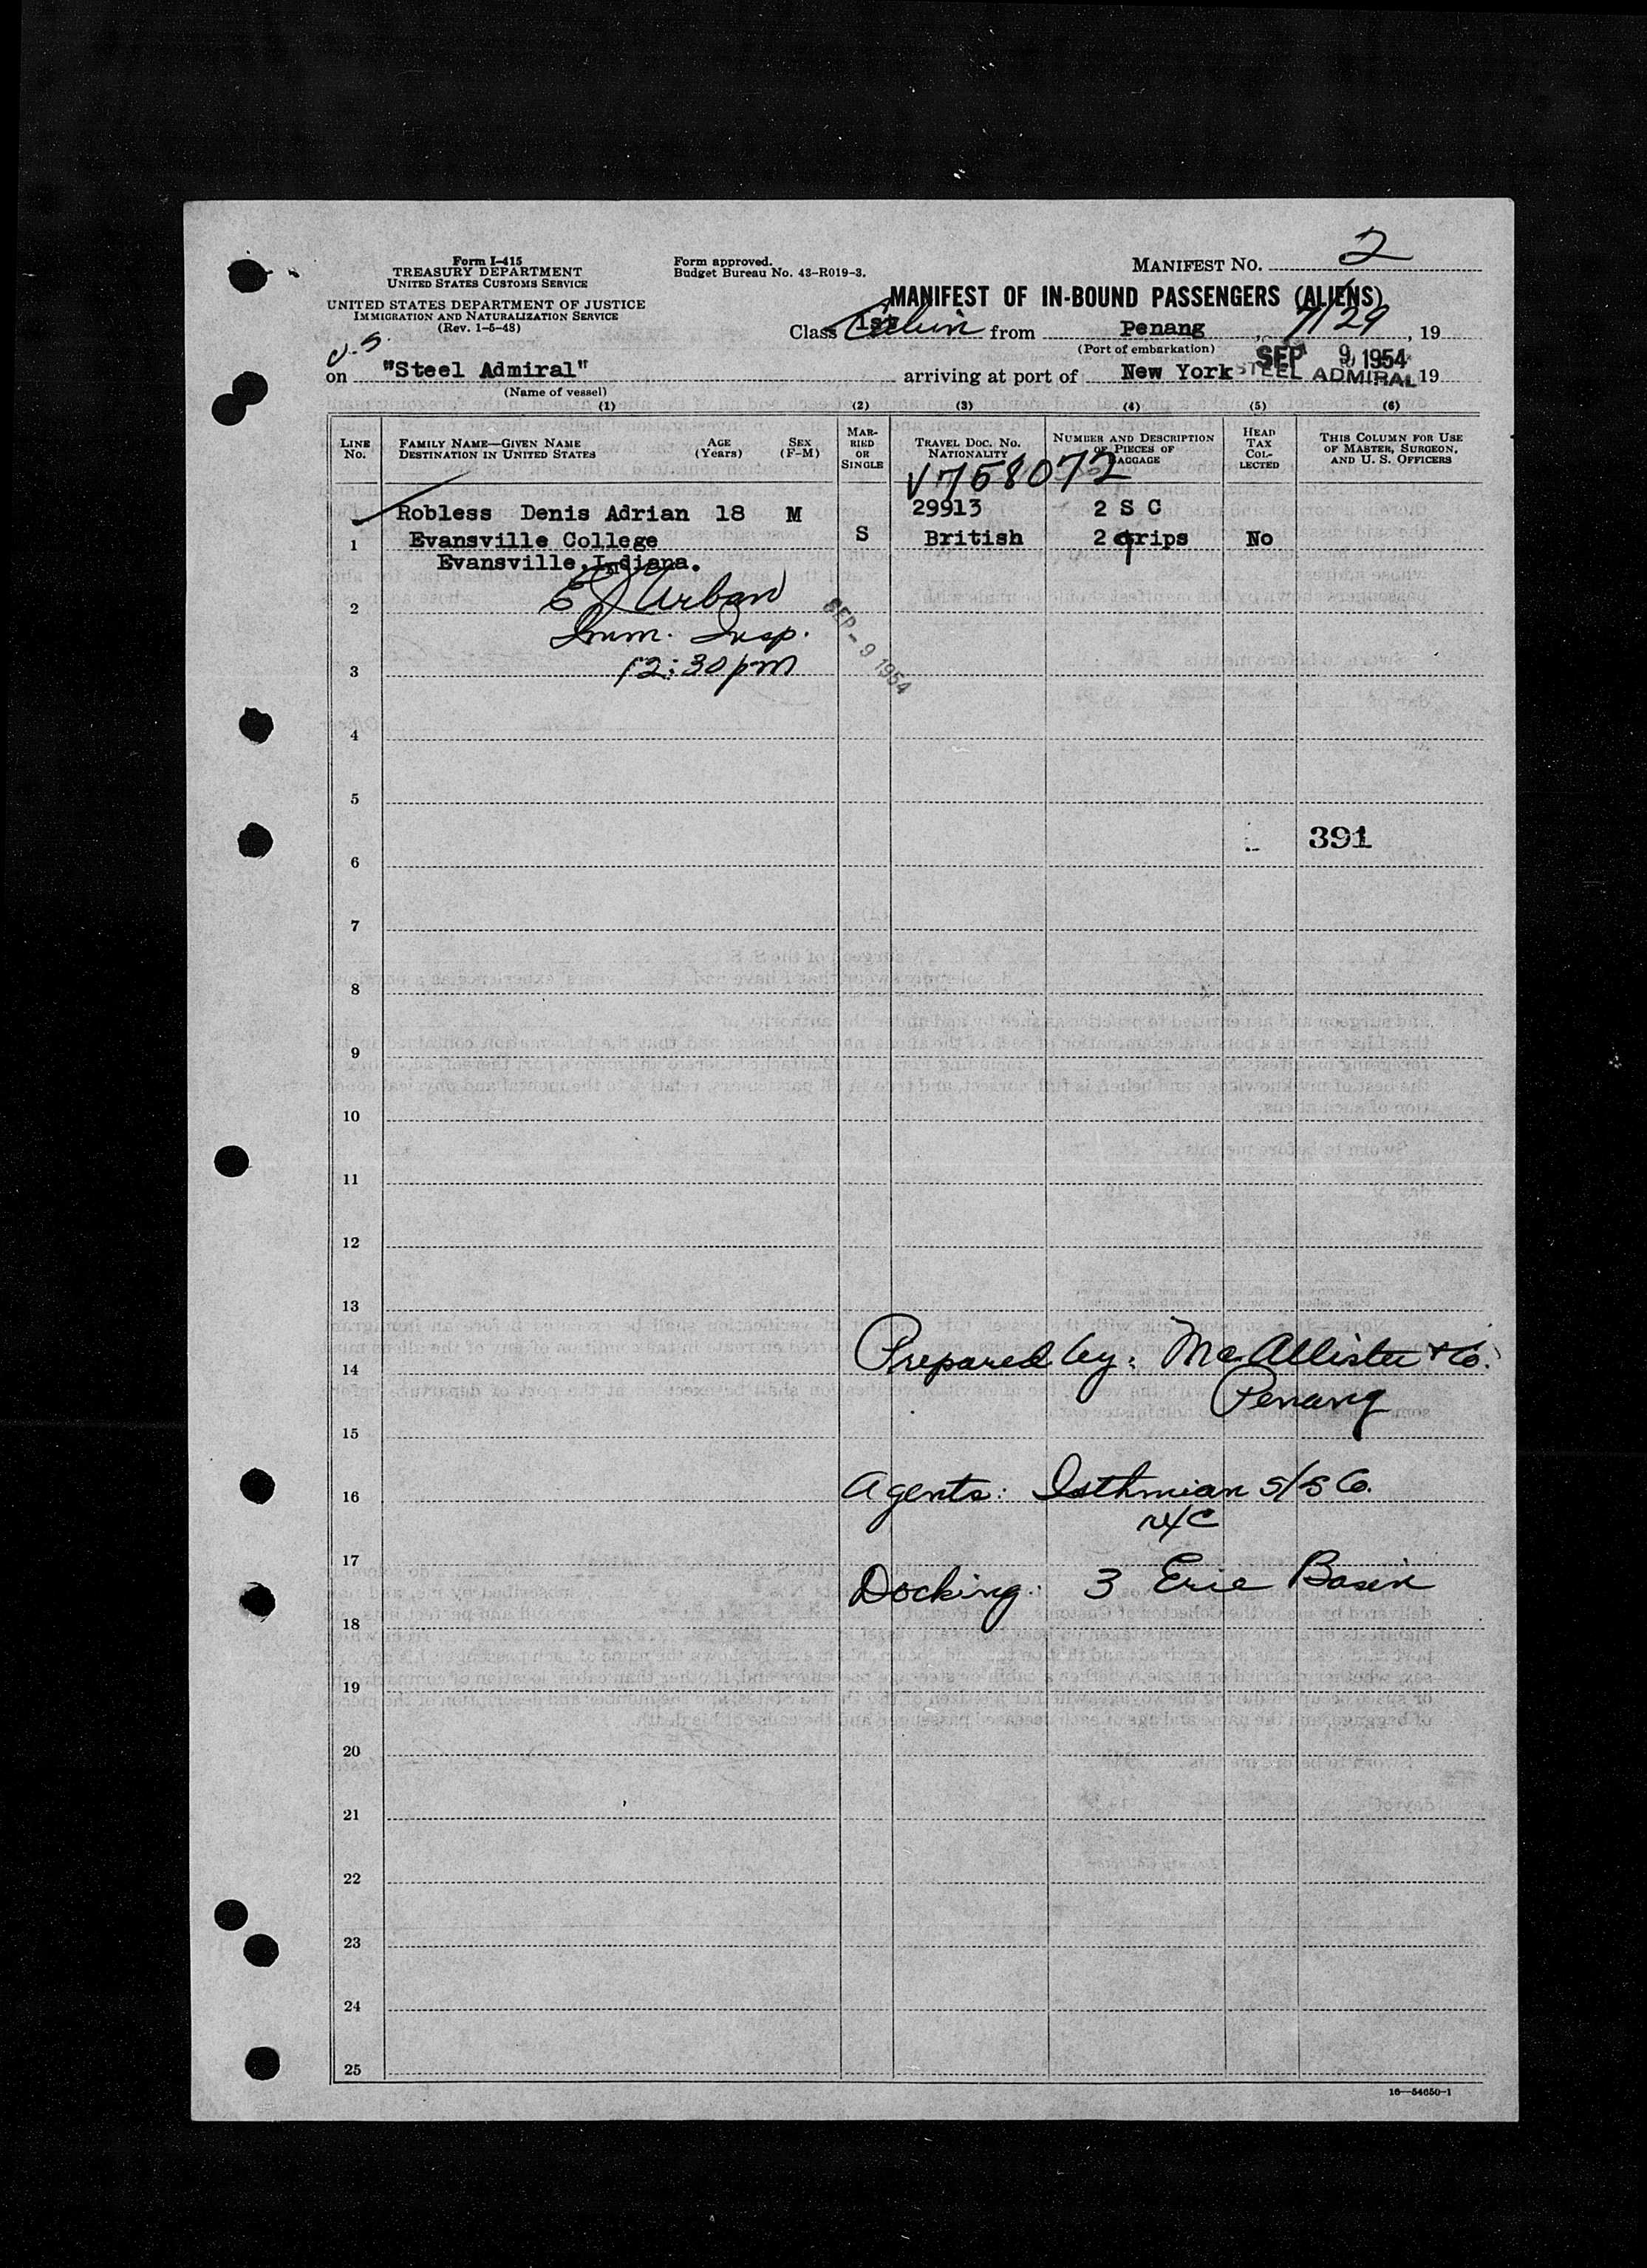 Form I-415
TREASURY DEPARTMENT
UNITED STATES CUSTOMS SERVICE
UNITED STATES DEPARTMENT OF JUSTICE
IMMIGRATION AND NATURALIZATION SERVICE
(Rev. 1-5-48)
Form approved.
Budget Bureau No. 43-R019-3.
MANIFEST NO. 2
MANIFEST OF IN-BOUND PASSENGERS (ALIENS)
Class 1st Cabin from Penang, 7/29, 19
(Port of embarkation)
on "Steel Admiral" arriving at port of New York SEP 9 1954 19
STEEL ADMIRAL
(Name of vessel)
(1) (2) (3) (4) (5) (6)
LINE NO. FAMILY NAME—GIVEN NAME DESTINATION IN UNITED STATES AGE (Years) SEX (F-M) MARRIED OR SINGLE TRAVEL DOC. NO. NATIONALITY NUMBER AND DESCRIPTION OF PIECES OF BAGGAGE HEAD TAX COLLECTED THIS COLUMN FOR USE OF MASTER, SURGEON, AND U. S. OFFICERS
V768072
Robless Denis Adrian 18 M 29913 2 S C
1 Evansville College S British 2 grips No
Evansville, Indiana.
E J Urban
2
Imm. Insp.
SEP - 9 1954
12:30 pm
3
4
5
391
6
7
8
9
10
11
12
13
Prepared by: McAllister & Co.
14
Penang
15
Agents: Isthmian S/S Co.
16
N/C
17
Docking: 3 Erie Basin
18
19
20
21
22
23
24
25
16—54650-1